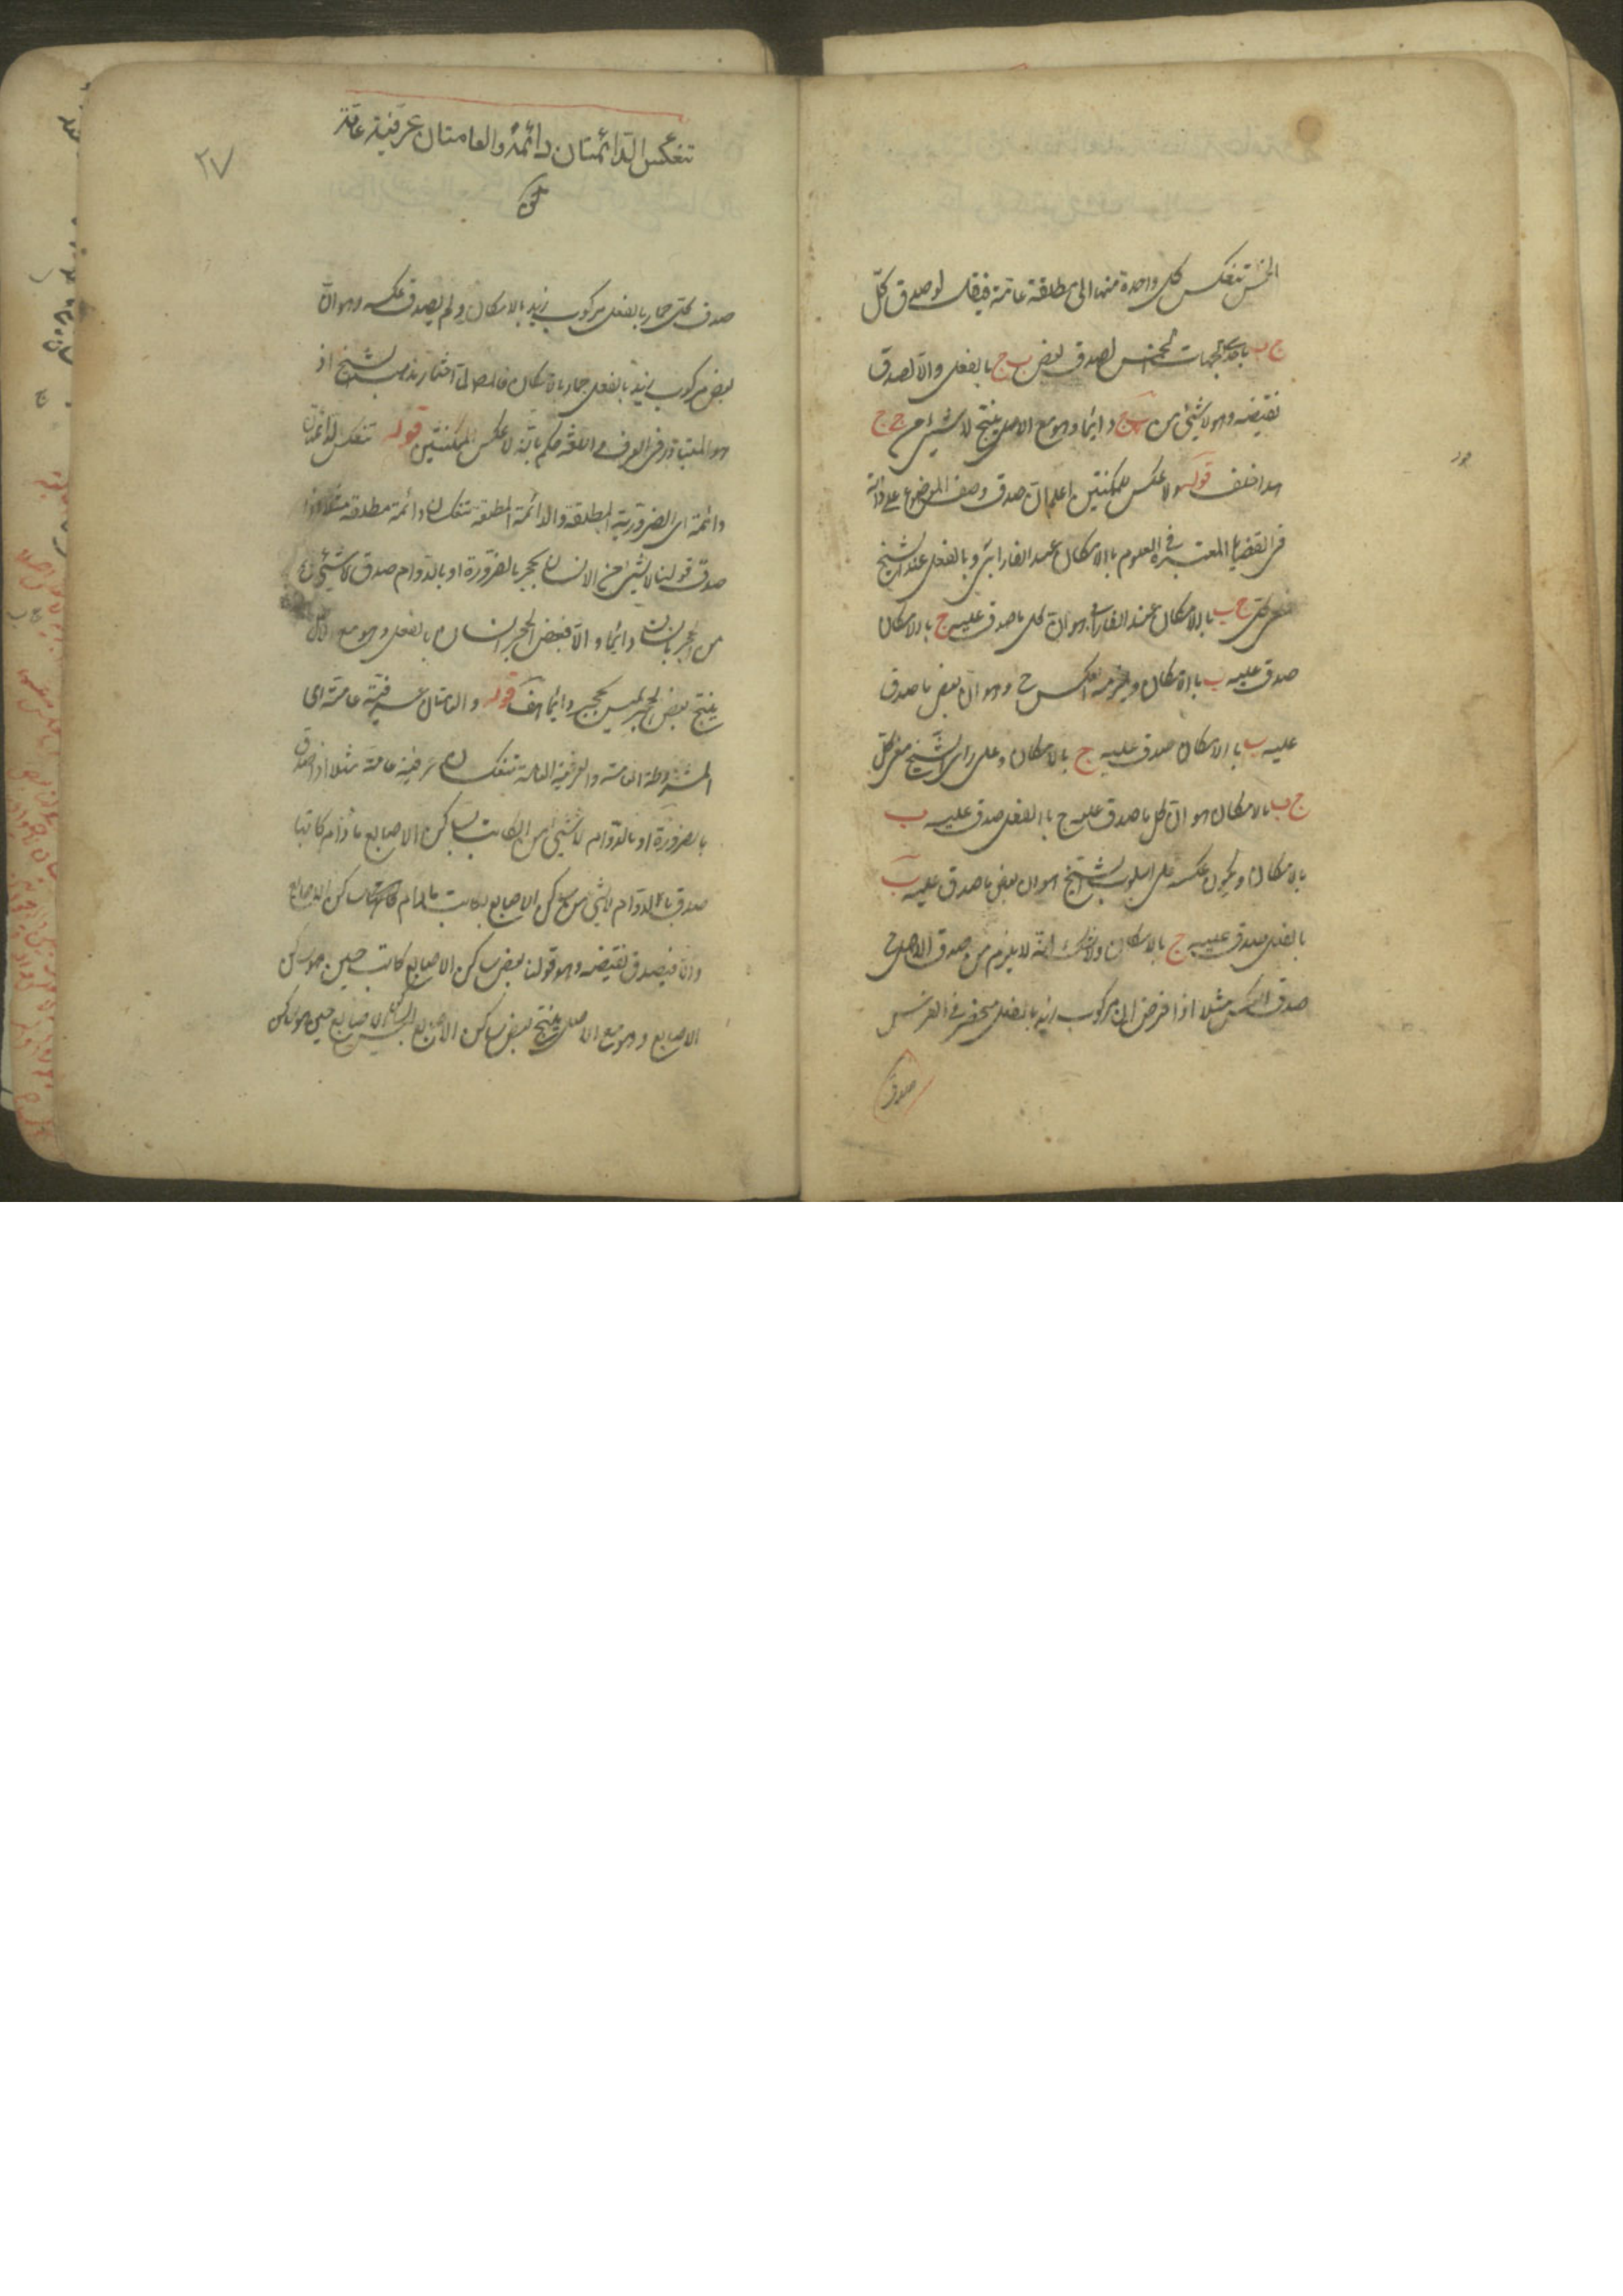 الخمس تنعكس كل واحدة منها الى مطلقة عامة فيقال لو صدق كل
ج ب باحدى الجهات الخمس لصدق بعض ب ج بالفعل والا لصدق
نقيضه وهو لا شيء من ب ج دايما وهو مع الاصل ينتج لا شيء من ج ج
هذا خلف قوله ولا عكس للممكنتين اعلم ان صدق وصف الموضوع على ذاته
في القضايا المعتبرة في العلوم بالامكان عند الفارابي وبالفعل عند الشيخ
فمعنى كل ج ب بالامكان عند الفارابي هو ان كل ما صدق عليه ج بالامكان
صدق عليه ب بالامكان ويلزمه العكس ح وهو ان بعض ما صدق
عليه ب بالامكان صدق عليه ج بالامكان وعلى راى الشيخ معنى كل
ج ب بالامكان هو ان كل ما صدق عليه ج بالفعل صدق عليه ب
بالامكان ويكون عكسه على اسلوب الشيخ هو ان بعض ما صدق عليه ب
بالفعل صدق عليه ج بالامكان ولا شك انه لا يلزم من صدق الاصل ح
صدق العكس مثلا اذا فرض ان مركوب زيد بالفعل منحصر في الفرس
صدق
٣٧
تنعكس الدائمتان دائمة والعامتان عرفية عامة
صدق كل حمار بالفعل مركوب زيد بالامكان ولم يصدق عكسه وهو ان
بعض مركوب زيد بالفعل حمار بالامكان فالمص لما اختار مذهب الشيخ اذ
هو المتبادر في العرف واللغة حكم بانه لا عكس للممكنتين قوله تنعكس الدائمتان
دائمة اى الضرورية المطلقة والدائمة المطلقة تنعكسان دائمة مطلقة مثلا اذا
صدق قولنا لا شيء من الانسان بحجر بالضرورة او بالدوام صدق لا شيء
من الحجر بانسان دايما والا فبعض الحجر انسان بالفعل وهو مع الاصل
ينتج بعض الحجر ليس بحجر دايما هف قوله والعامتان عرفية عامة اى
المشروطة العامة والعرفية العامة تنعكسان عرفية عامة مثلا اذا صدق
بالضرورة او بالدوام لا شيء من الكاتب بساكن الاصابع ما دام كاتبا
صدق بالدوام لا شيء من ساكن الاصابع بكاتب ما دام ساكن الاصابع
والا فيصدق نقيضه وهو قولنا بعض ساكن الاصابع كاتب حين هو ساكن
الاصابع وهو مع الاصل ينتج بعض ساكن الاصابع ليس بساكن الاصابع حين هو ساكن